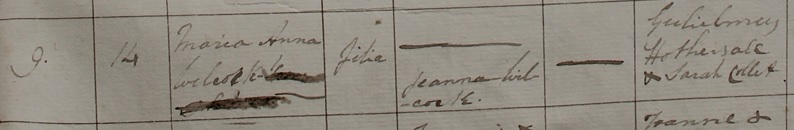 9. 14 Maria Anna Wilcock filia — Joanna Wil-
-cock. — Gulielmus
Hothersale
& Sarah Collet.
Joanne &